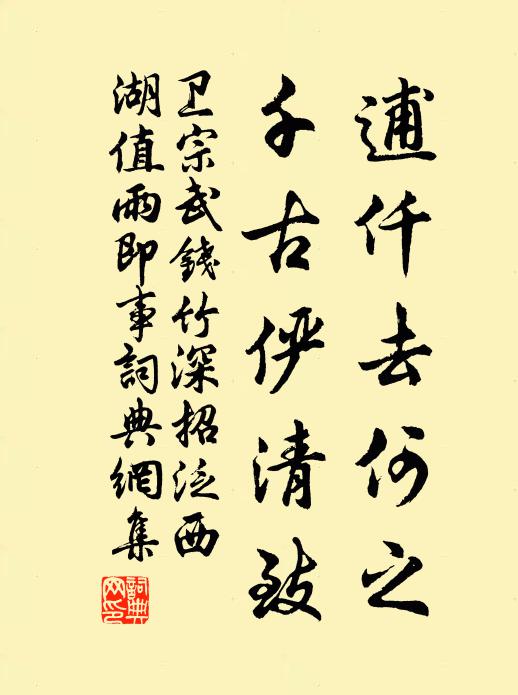 逋仟去何之
千古俨清致
卫宗武錢竹深招泛西
湖值雨即事詞典網集
詞典网印